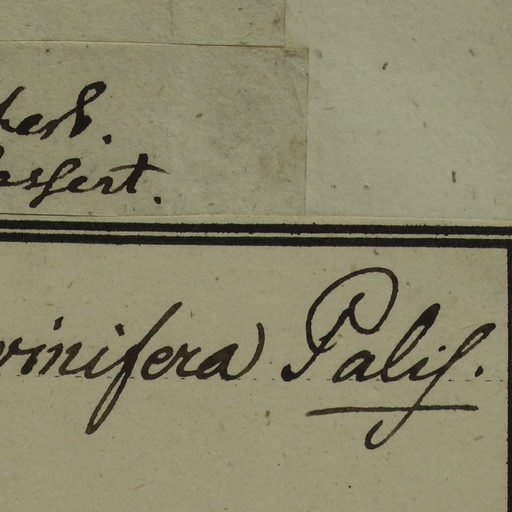 herb.
lessert.
vinifera Palis.